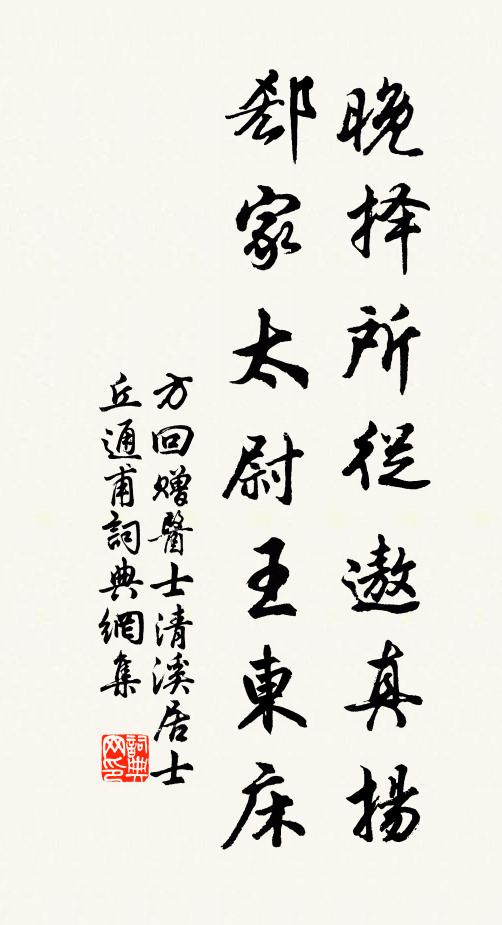 晚择所從遨真揚
郄家太尉王東床
方回赠醫士清溪居士
丘通甫詞典網集
詞典网印